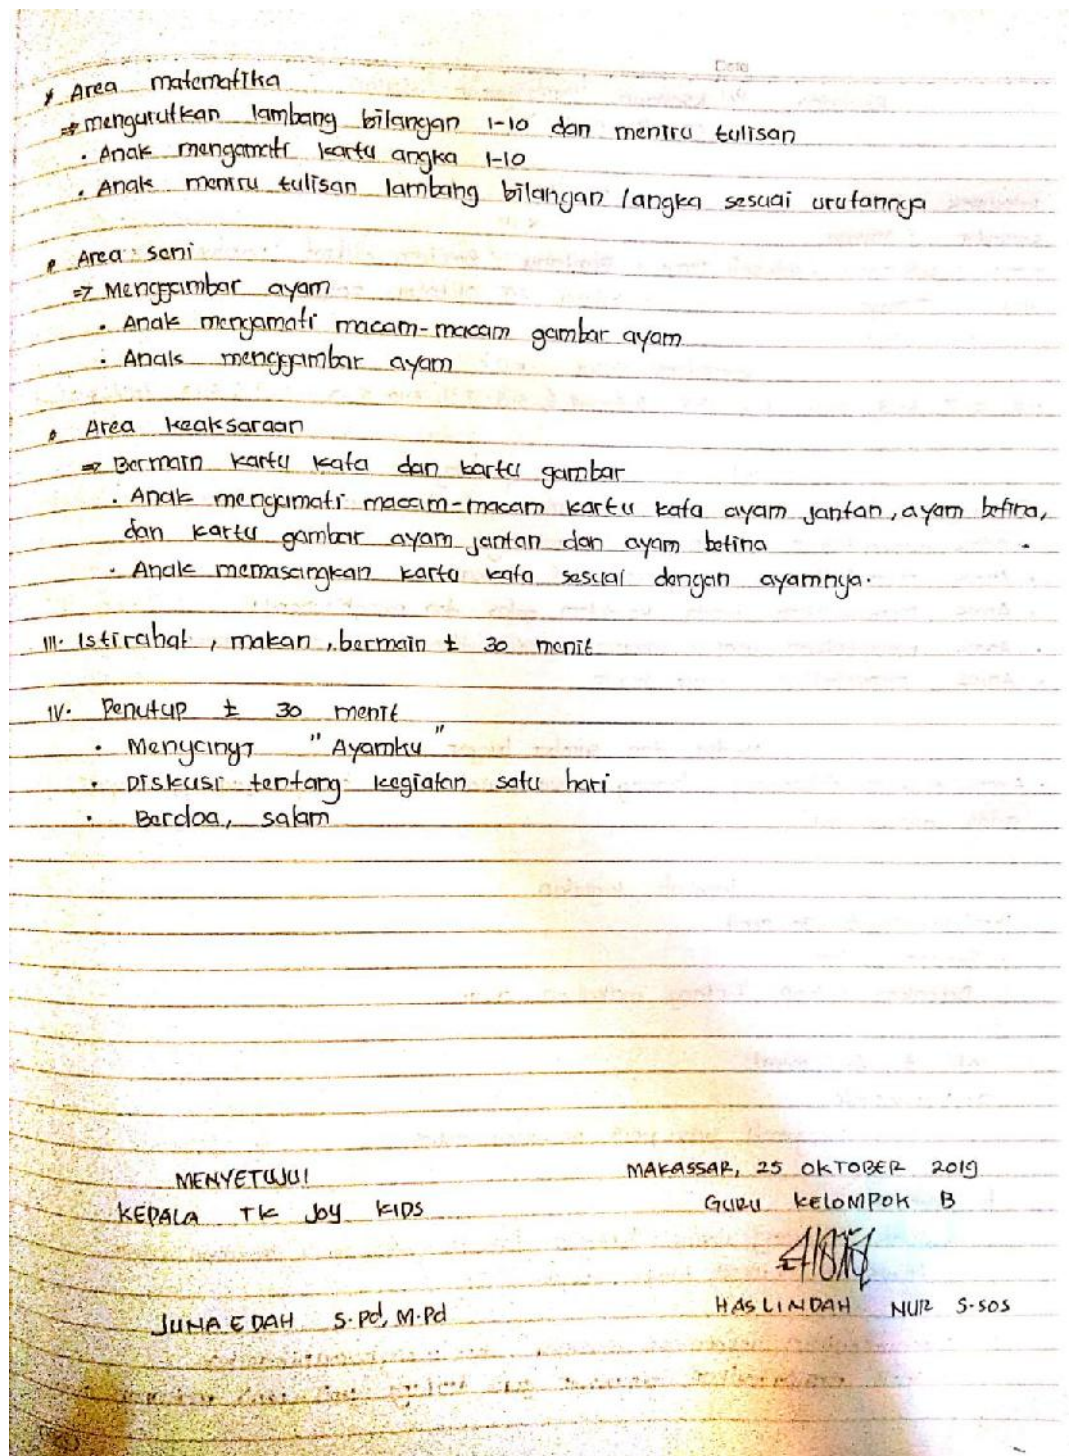 Date
* Area matematika
⇒ mengurutkan lambang bilangan 1-10 dan meniru tulisan
• Anak mengamati kartu angka 1-10
• Anak meniru tulisan lambang bilangan /angka sesuai urutannya
• Area seni
⇒ Menggambar ayam
• Anak mengamati macam-macam gambar ayam
• Anak menggambar ayam
• Area keaksaraan
⇒ Bermain kartu kata dan kartu gambar
• Anak mengamati macam-macam kartu kata ayam jantan, ayam betina,
dan kartu gambar ayam jantan dan ayam betina
• Anak memasangkan kartu kata sesuai dengan ayamnya.
III. Istirahat, makan, bermain ± 30 menit
IV. Penutup ± 30 menit
• Menyanyi "Ayamku"
• Diskusi tentang kegiatan satu hari
• Berdoa, salam
MENYETUJUI
MAKASSAR, 25 OKTOBER 2019
KEPALA TK Joy KIDS
GURU KELOMPOK B
JUNAEDAH S.Pd, M.Pd
HASLINDAH NUR S.SOS